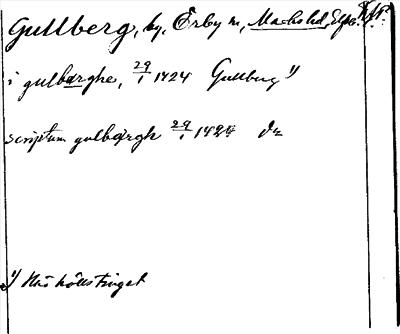 Gullberg, by, Erby sn, Marks hd, Elfs.
i gulbærghe, 29/1 1424 Gullberg 1)
scriptum gulbærgh 29/1 1424 Da
1) Här hölls tinget